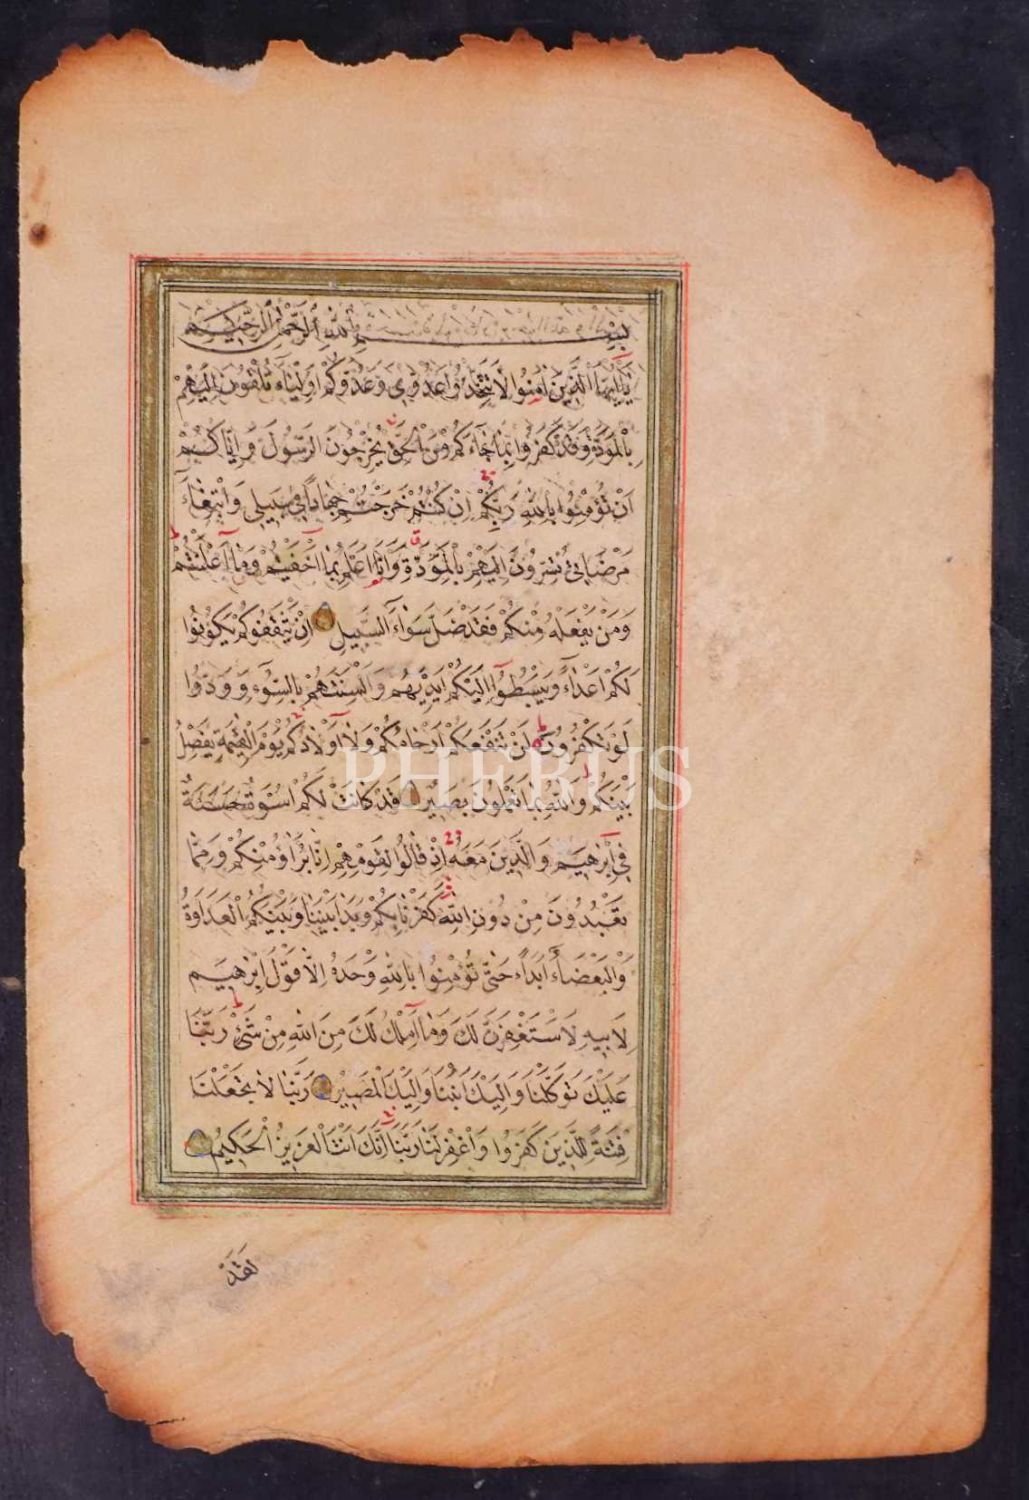 بِسْمِ اللهِ الرَّحْمٰنِ الرَّحِيمِ
يَآ اَيُّهَا الَّذِينَ اٰمَنُوا لَا تَتَّخِذُوا عَدُوِّى وَعَدُوَّكُمْ اَوْلِيَٓاءَ تُلْقُونَ اِلَيْهِمْ
بِالْمَوَدَّةِ وَقَدْ كَفَرُوا بِمَا جَٓاءَكُمْ مِنَ الْحَقِّ يُخْرِجُونَ الرَّسُولَ وَاِيَّاكُمْ
اَنْ تُؤْمِنُوا بِاللهِ رَبِّكُمْ اِنْ كُنْتُمْ خَرَجْتُمْ جِهَادًا فِى سَبِيلِى وَابْتِغَٓاءَ
مَرْضَاتِى تُسِرُّونَ اِلَيْهِمْ بِالْمَوَدَّةِ وَاَنَا اَعْلَمُ بِمَٓا اَخْفَيْتُمْ وَمَٓا اَعْلَنْتُمْ
وَمَنْ يَفْعَلْهُ مِنْكُمْ فَقَدْ ضَلَّ سَوَٓاءَ السَّبِيلِ اِنْ يَثْقَفُوكُمْ يَكُونُوا
لَكُمْ اَعْدَٓاءً وَيَبْسُطُٓوا اِلَيْكُمْ اَيْدِيَهُمْ وَاَلْسِنَتَهُمْ بِالسُّوٓءِ وَوَدُّوا
لَوْ تَكْفُرُونَ لَنْ تَنْفَعَكُمْ اَرْحَامُكُمْ وَلَٓا اَوْلَادُكُمْ يَوْمَ الْقِيٰمَةِ يَفْصِلُ
بَيْنَكُمْ وَاللهُ بِمَا تَعْمَلُونَ بَصِيرٌ قَدْ كَانَتْ لَكُمْ اُسْوَةٌ حَسَنَةٌ
فِى اِبْرٰهِيمَ وَالَّذِينَ مَعَهُ اِذْ قَالُوا لِقَوْمِهِمْ اِنَّا بُرَءٰٓؤُا مِنْكُمْ وَمِمَّا
تَعْبُدُونَ مِنْ دُونِ اللهِ كَفَرْنَا بِكُمْ وَبَدَا بَيْنَنَا وَبَيْنَكُمُ الْعَدَاوَةُ
وَالْبَغْضَٓاءُ اَبَدًا حَتّٰى تُؤْمِنُوا بِاللهِ وَحْدَهُ اِلَّا قَوْلَ اِبْرٰهِيمَ
لِاَبِيهِ لَاَسْتَغْفِرَنَّ لَكَ وَمَٓا اَمْلِكُ لَكَ مِنَ اللهِ مِنْ شَىْءٍ رَبَّنَا
عَلَيْكَ تَوَكَّلْنَا وَاِلَيْكَ اَنَبْنَا وَاِلَيْكَ الْمَصِيرُ رَبَّنَا لَا تَجْعَلْنَا
فِتْنَةً لِلَّذِينَ كَفَرُوا وَاغْفِرْ لَنَا رَبَّنَا اِنَّكَ اَنْتَ الْعَزِيزُ الْحَكِيمُ
لَقَدْ
PHEBUS